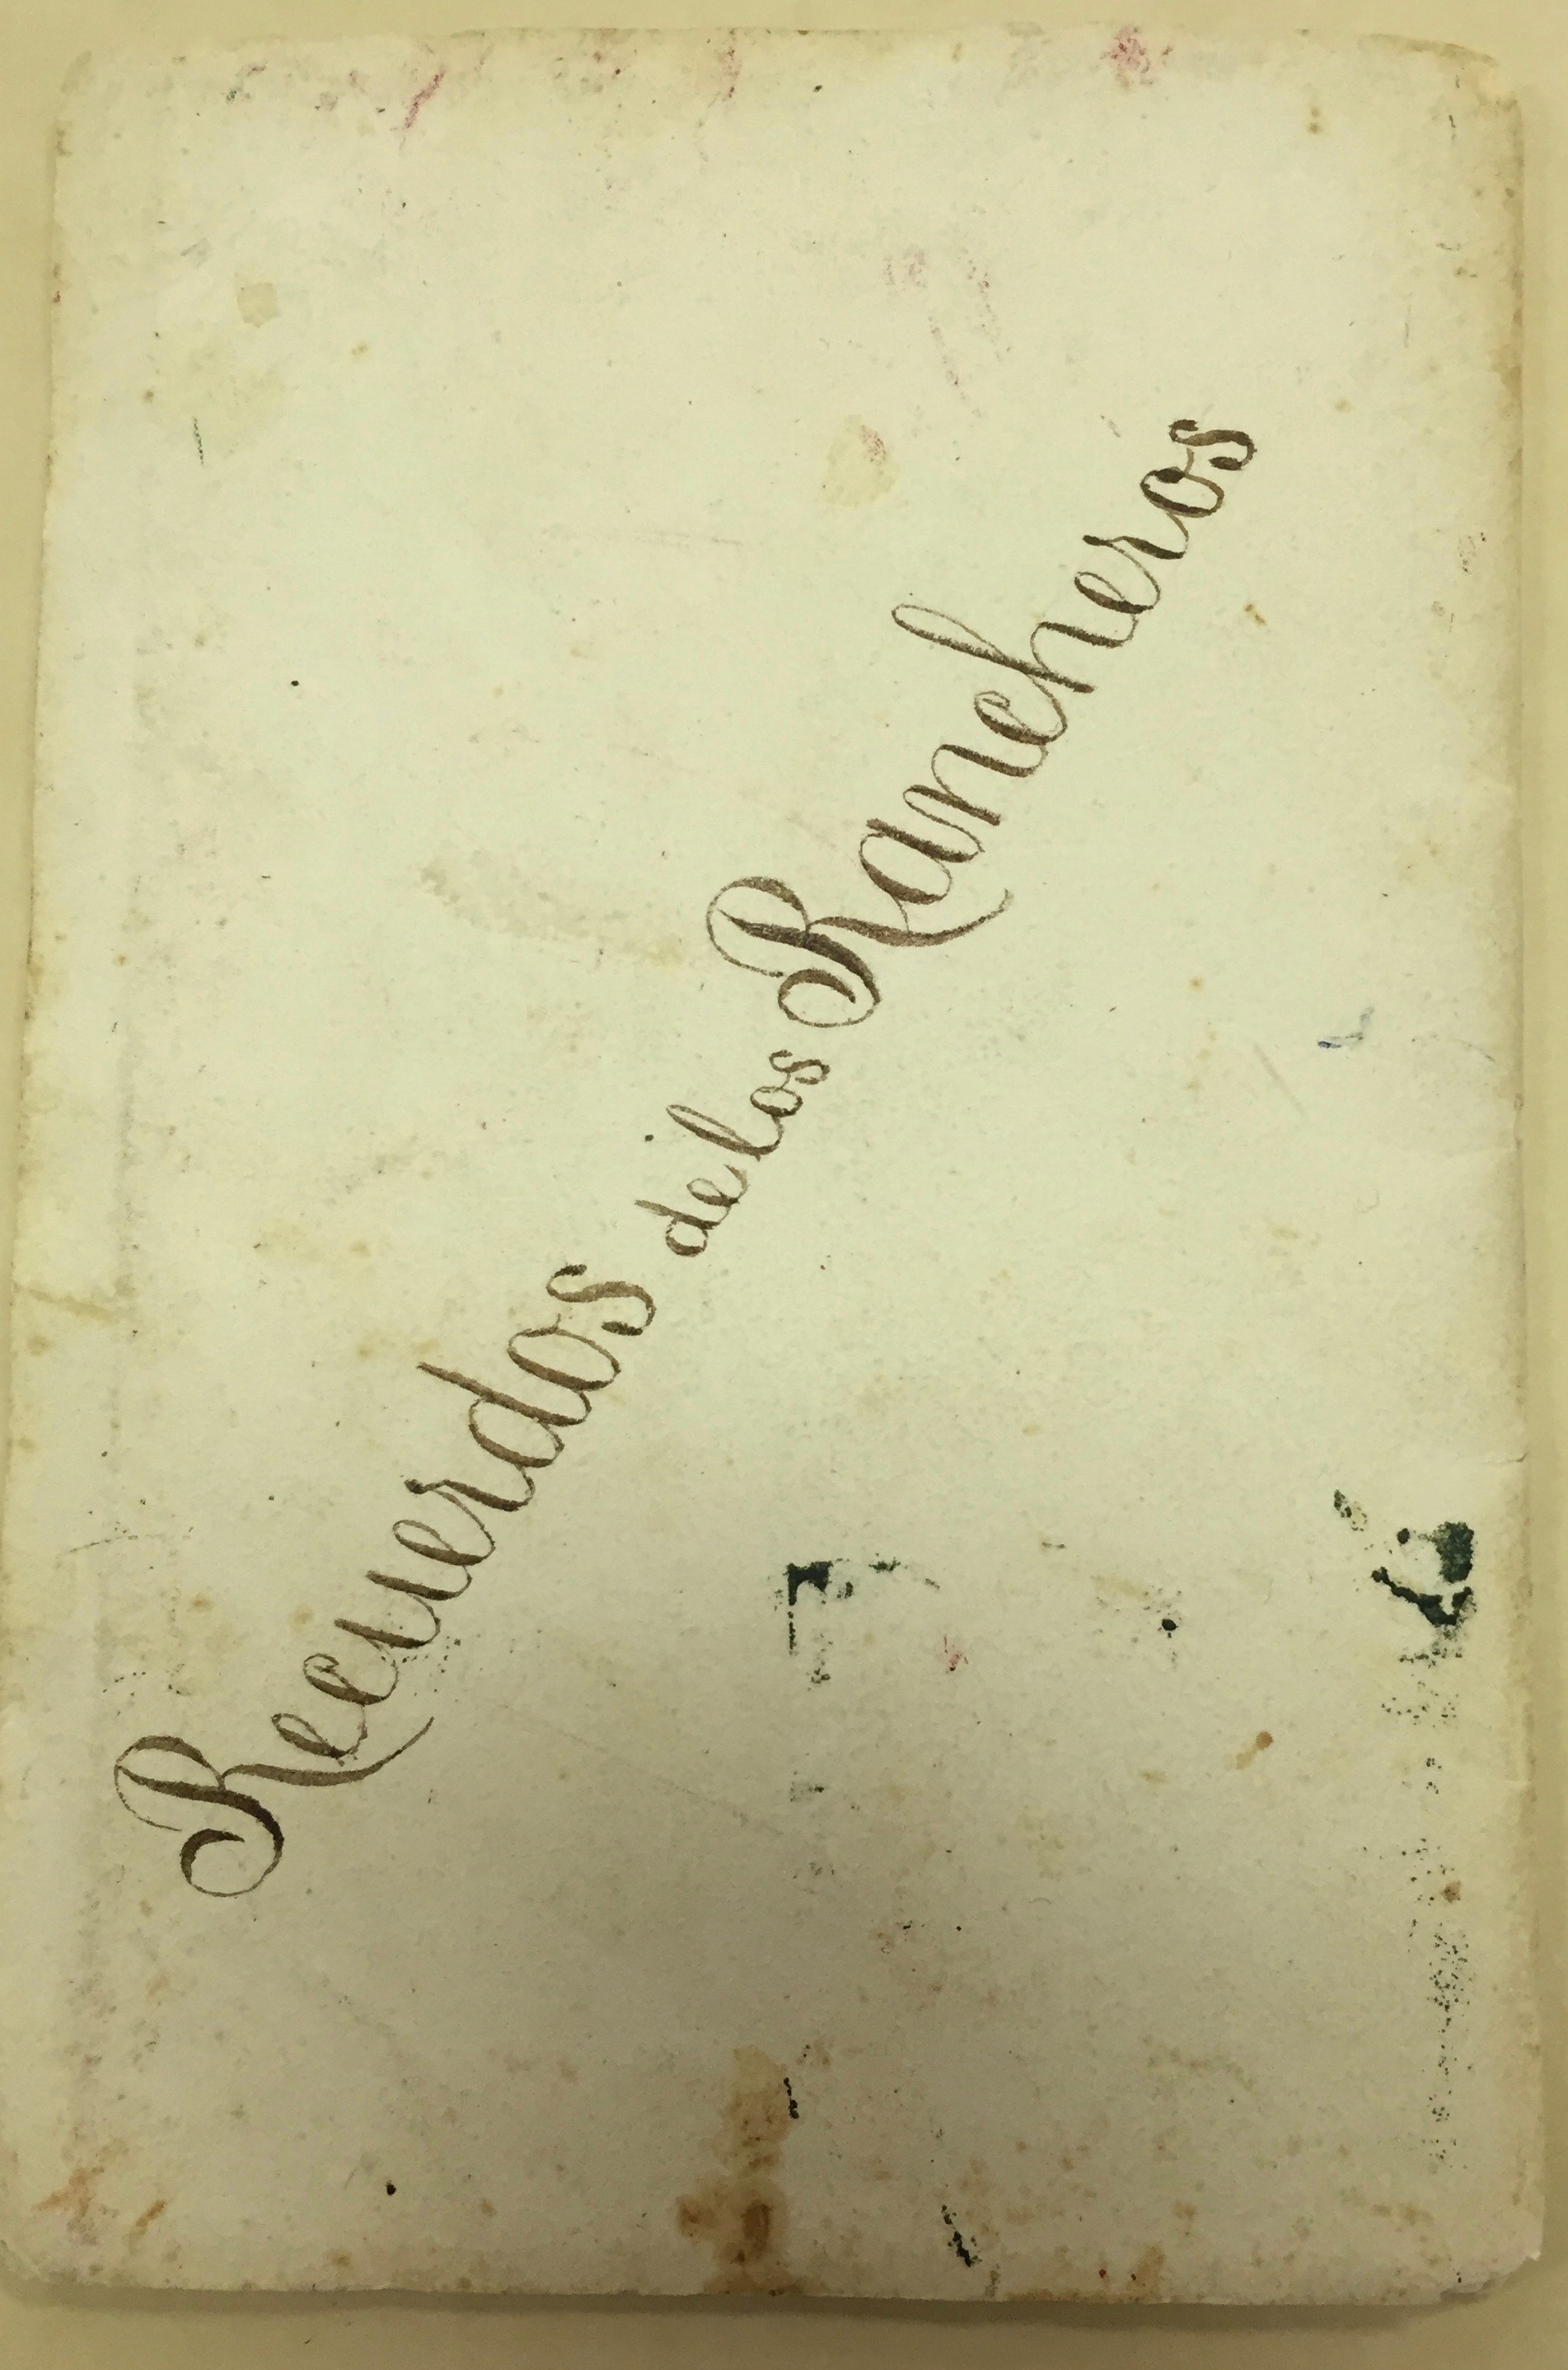 Recuerdos de los Rancheros